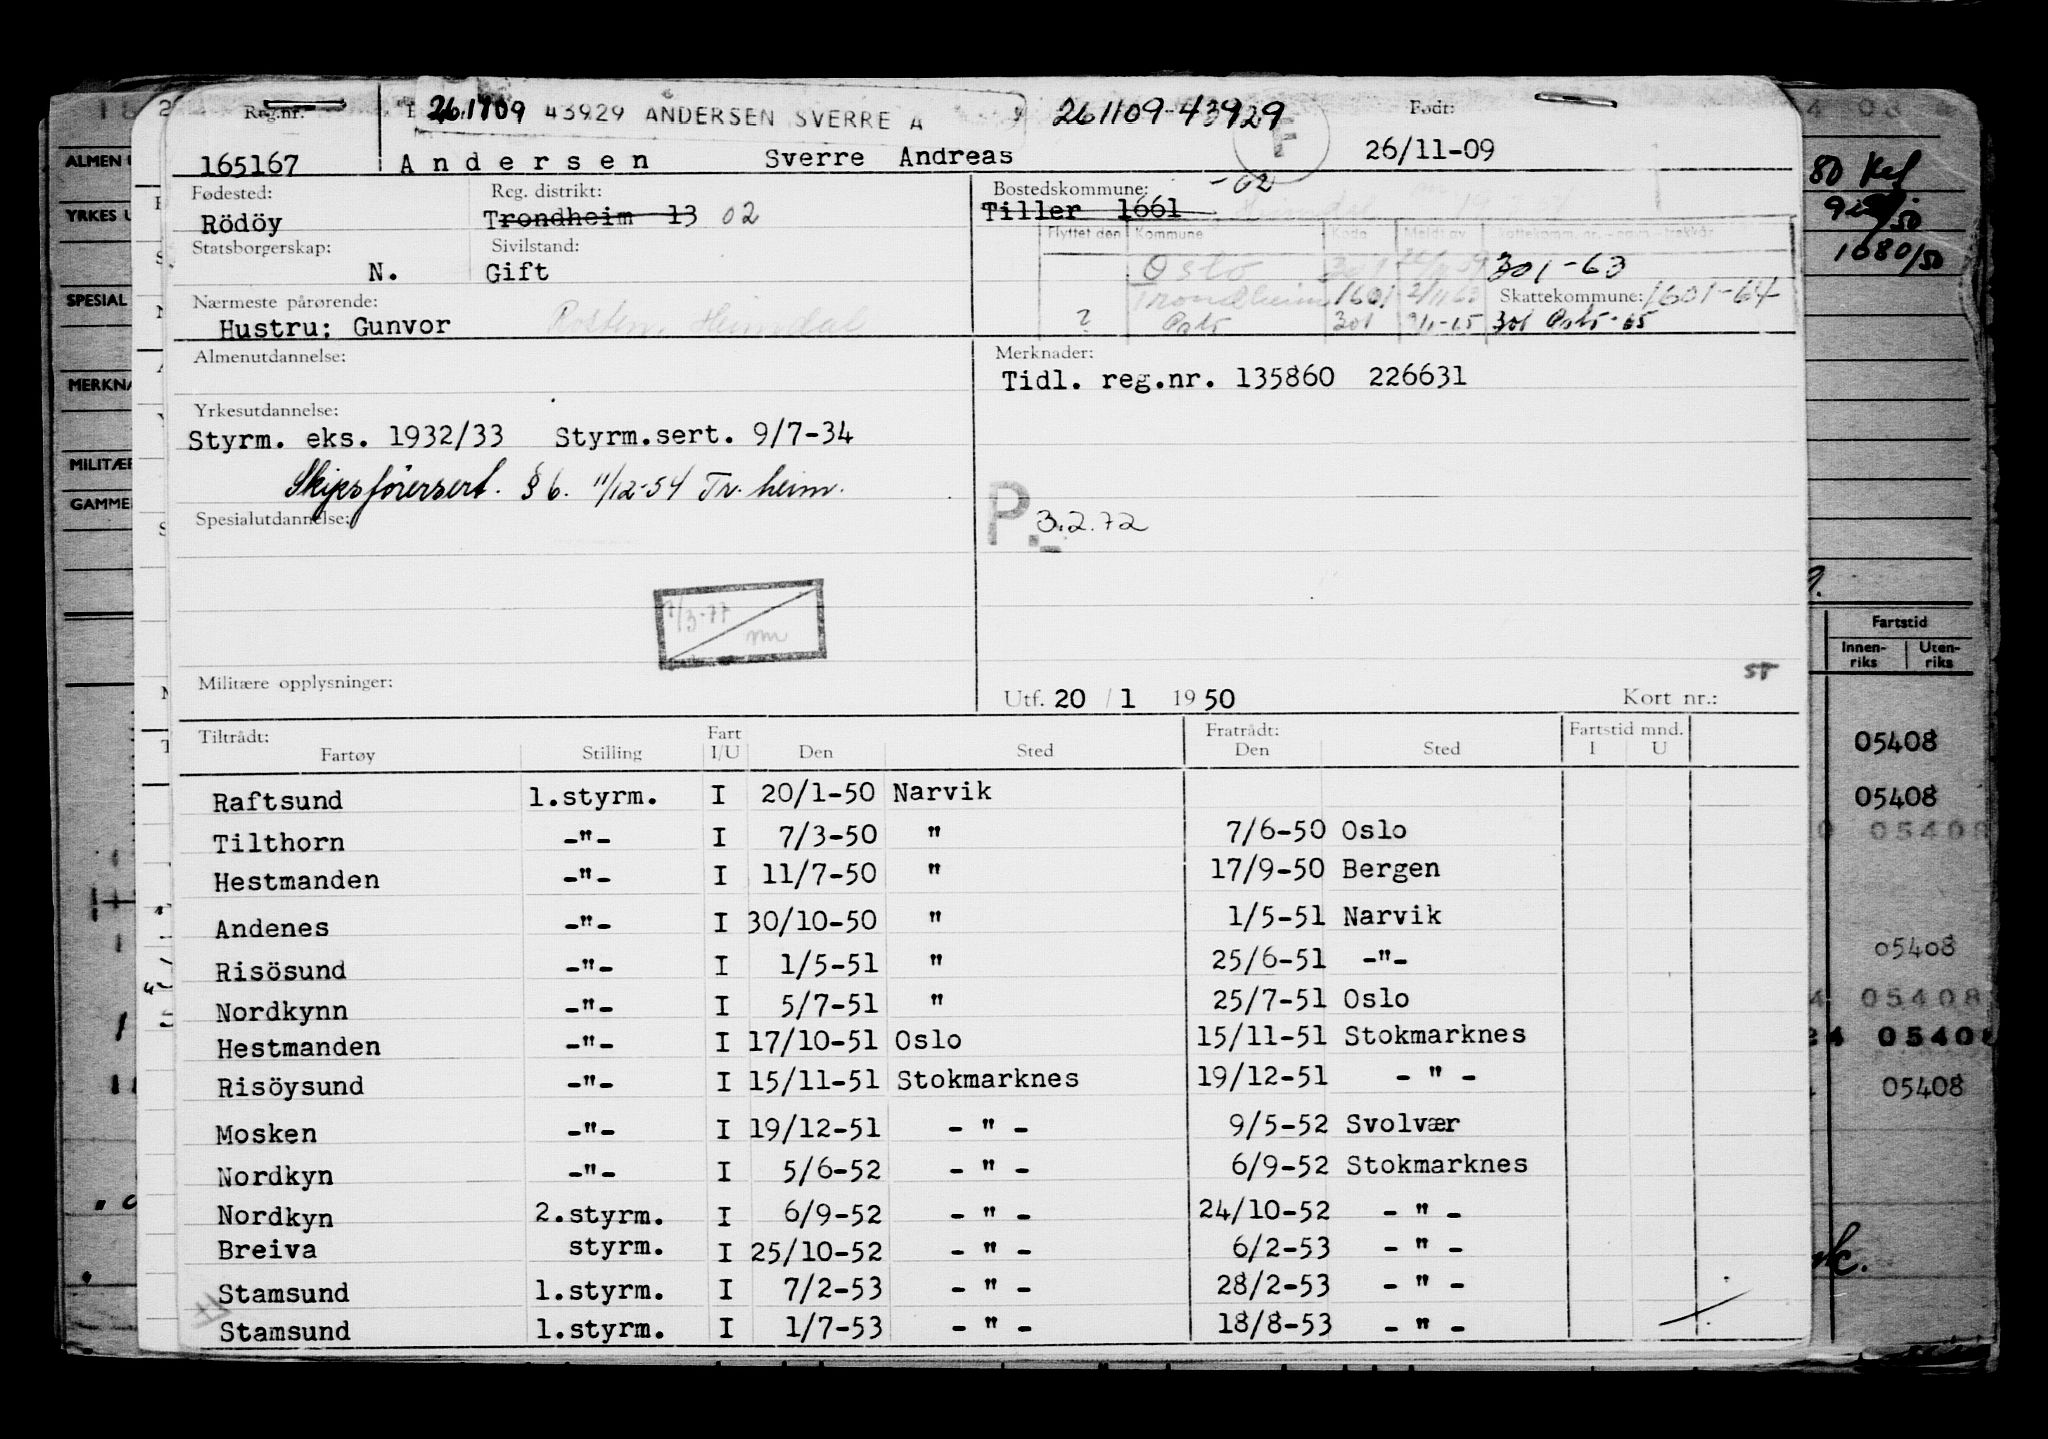 Reg.nr. 261109 43929 ANDERSEN SVERRE A 261109-43929 Født:
165167 Andersen Sverre Andreas F 26/11-09
Fødested: Reg. distrikt: Bostedskommune: -02
Rödöy Trondheim 13 02 Tiller 1661
Statsborgerskap: Sivilstand: Flyttet den Kommune Kode Meldt av
N. Gift Oslo 301 301-63
Nærmeste pårørende: Trondheim 1601 2/11 63 Skattekommune: 1601-64
Hustru: Gunvor Rosten, Heimdal ? Oslo 301 9/1-65 301 Oslo-65
Almenutdannelse: Merknader:
Tidl. reg.nr. 135860 226631
Yrkesutdannelse:
Styrm. eks. 1932/33 Styrm.sert. 9/7-34
Skipsförersert. § 6. 11/12-54 Tr.heim.
Spesialutdannelse: P.- 3.2.72
1/3-77
Militære opplysninger: Utf. 20 / 1 1950 Kort nr.: ST
Tiltrådt: Fart Fratrådt: Fartstid mnd.
Fartøy Stilling I/U Den Sted Den Sted I U
Raftsund 1.styrm. I 20/1-50 Narvik
Tilthorn -"- I 7/3-50 " 7/6-50 Oslo
Hestmanden -"- I 11/7-50 " 17/9-50 Bergen
Andenes -"- I 30/10-50 " 1/5-51 Narvik
Risösund -"- I 1/5-51 " 25/6-51 -"-
Nordkynn -"- I 5/7-51 " 25/7-51 Oslo
Hestmanden -"- I 17/10-51 Oslo 15/11-51 Stokmarknes
Risöysund -"- I 15/11-51 Stokmarknes 19/12-51 - " -
Mosken -"- I 19/12-51 - " - 9/5-52 Svolvær
Nordkyn -"- I 5/6-52 - " - 6/9-52 Stokmarknes
Nordkyn 2.styrm. I 6/9-52 - " - 24/10-52 - " -
Breiva styrm. I 25/10-52 - " - 6/2-53 - " -
Stamsund 1.styrm. I 7/2-53 - " - 28/2-53 - " -
Stamsund 1.styrm. I 1/7-53 - " - 18/8-53 - " -
ALMEN
YRKES U
SPESIAL
MERKNA
MILITÆR
GAMME
1080/50
Fartstid
Innen-riks Uten-riks
05408
05408
05408
05408
05408
05408
05408